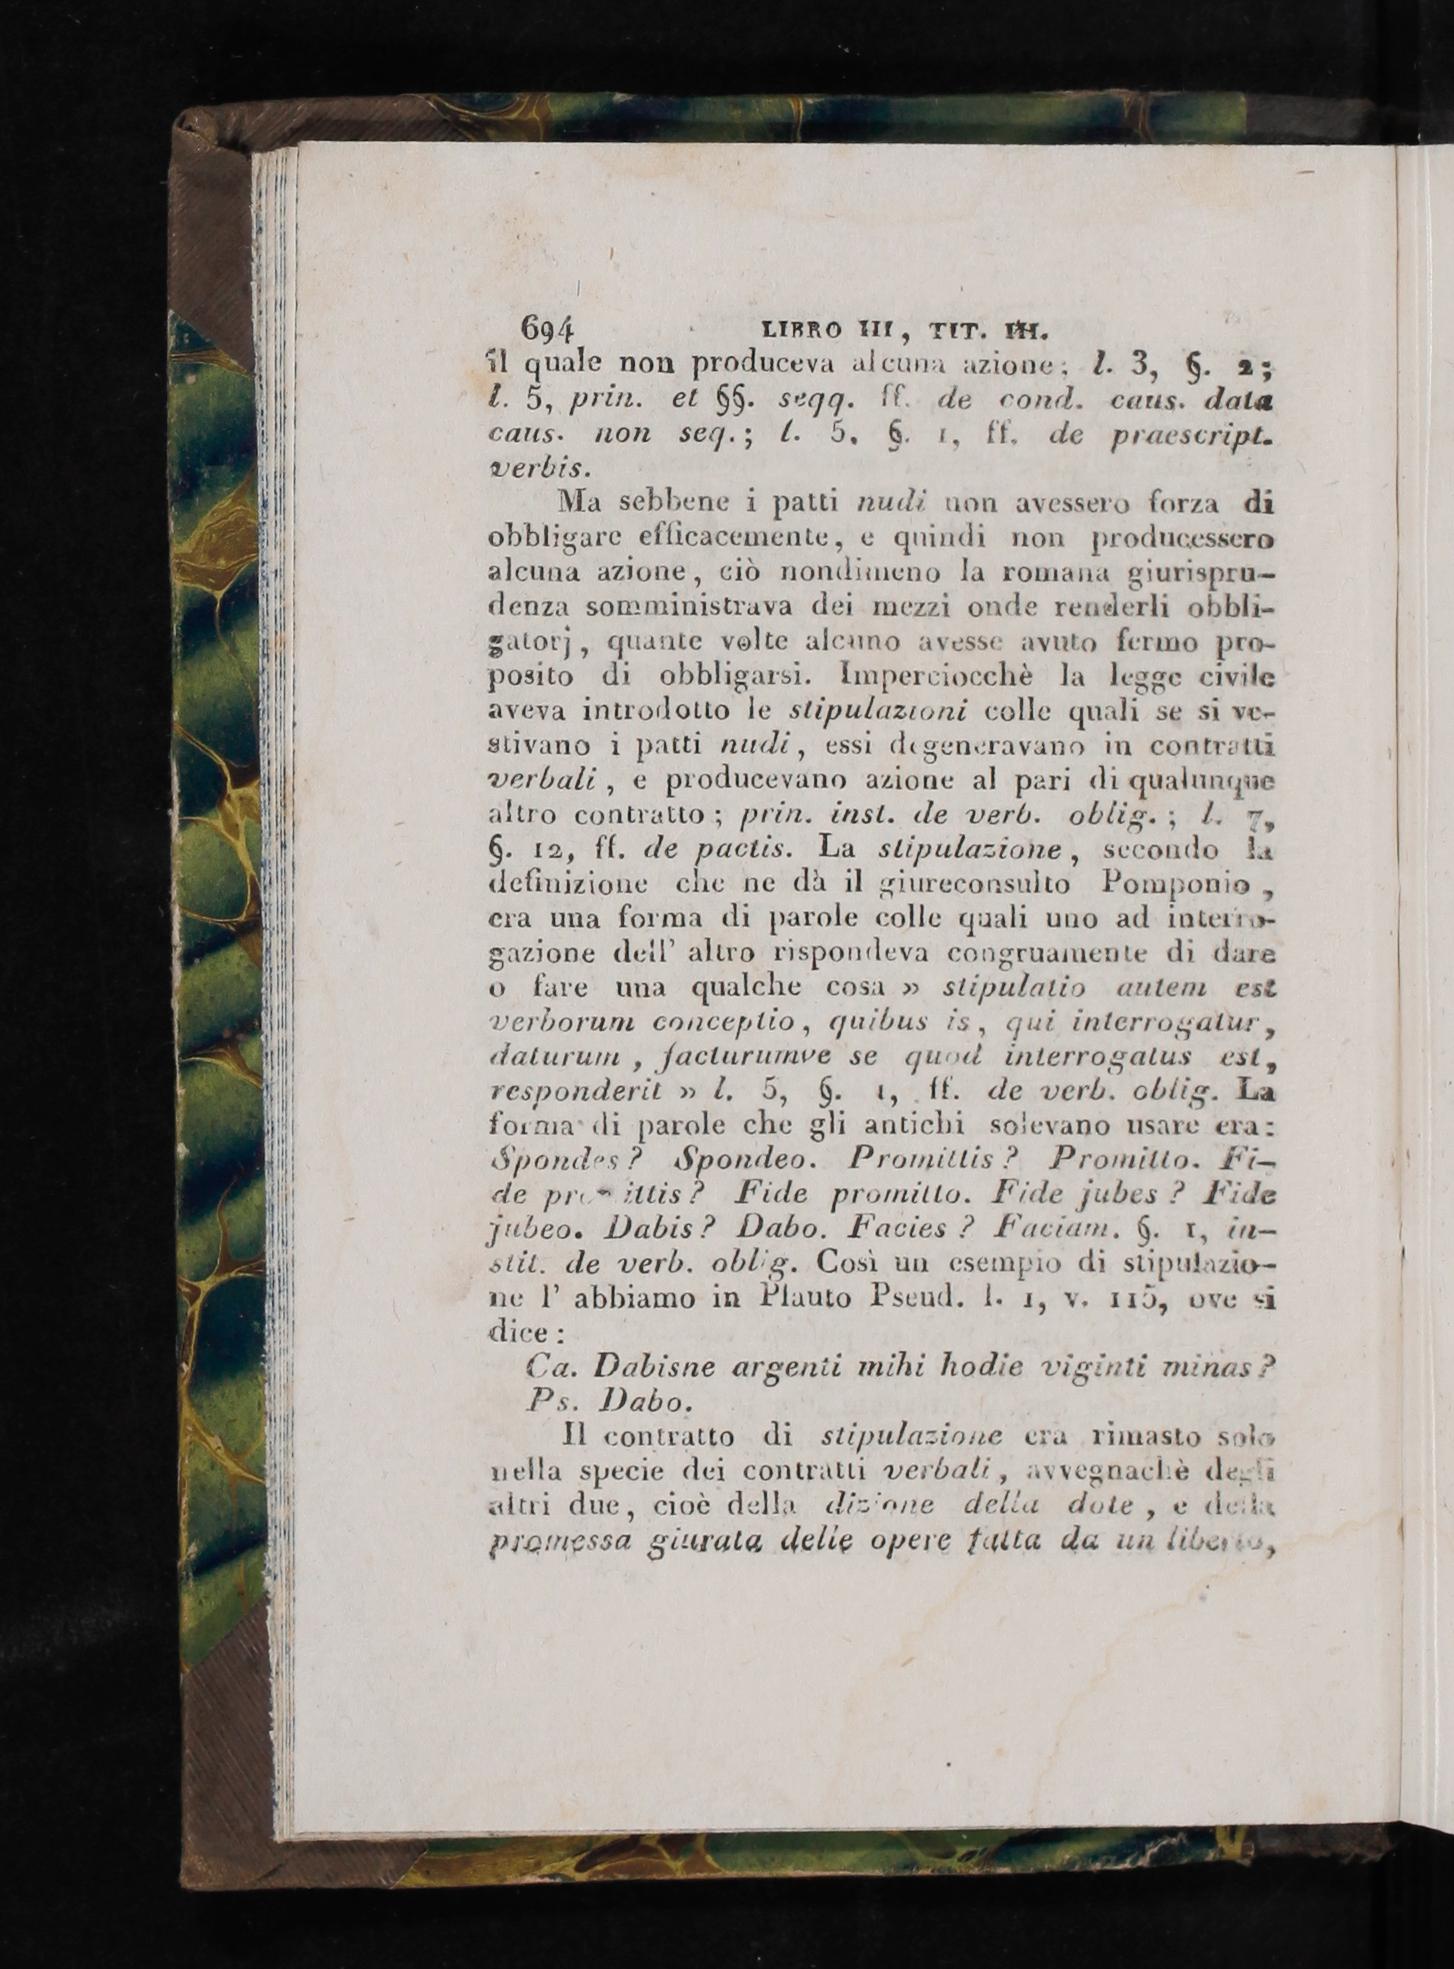 694 LIBRO III, TIT. III.
il quale non produceva alcuna azione; l. 3, §. 2;
l. 5, prin. et §§. seqq. ff. de cond. caus. data
caus. non seq.; l. 5, §. 1, ff. de praescript.
verbis.
Ma sebbene i patti nudi non avessero forza di
obbligare efficacemente, e quindi non producessero
alcuna azione, ciò nondimeno la romana giurispru-
denza somministrava dei mezzi onde renderli obbli-
gatorj, quante volte alcuno avesse avuto fermo pro-
posito di obbligarsi. Imperciocchè la legge civile
aveva introdotto le stipulazioni colle quali se si ve-
stivano i patti nudi, essi degeneravano in contratti
verbali, e producevano azione al pari di qualunque
altro contratto; prin. inst. de verb. oblig.; l. 7,
§. 12, ff. de pactis. La stipulazione, secondo la
definizione che ne dà il giureconsulto Pomponio,
era una forma di parole colle quali uno ad interro-
gazione dell' altro rispondeva congruamente di dare
o fare una qualche cosa » stipulatio autem est
verborum conceptio, quibus is, qui interrogatur,
daturum, facturumve se quod interrogatus est,
responderit » l. 5, §. 1, ff. de verb. oblig. La
forma di parole che gli antichi solevano usare era:
Spondes? Spondeo. Promittis? Promitto. Fi-
de promittis? Fide promitto. Fide jubes? Fide
jubeo. Dabis? Dabo. Facies? Faciam. §. 1, in-
stit. de verb. oblig. Così un esempio di stipulazio-
ne l' abbiamo in Plauto Pseud. l. 1, v. 115, ove si
dice:
Ca. Dabisne argenti mihi hodie viginti minas?
Ps. Dabo.
Il contratto di stipulazione era rimasto solo
nella specie dei contratti verbali, avvegnachè degli
altri due, cioè della dizione della dote, e della
promessa giurata delle opere fatta da un liberto,